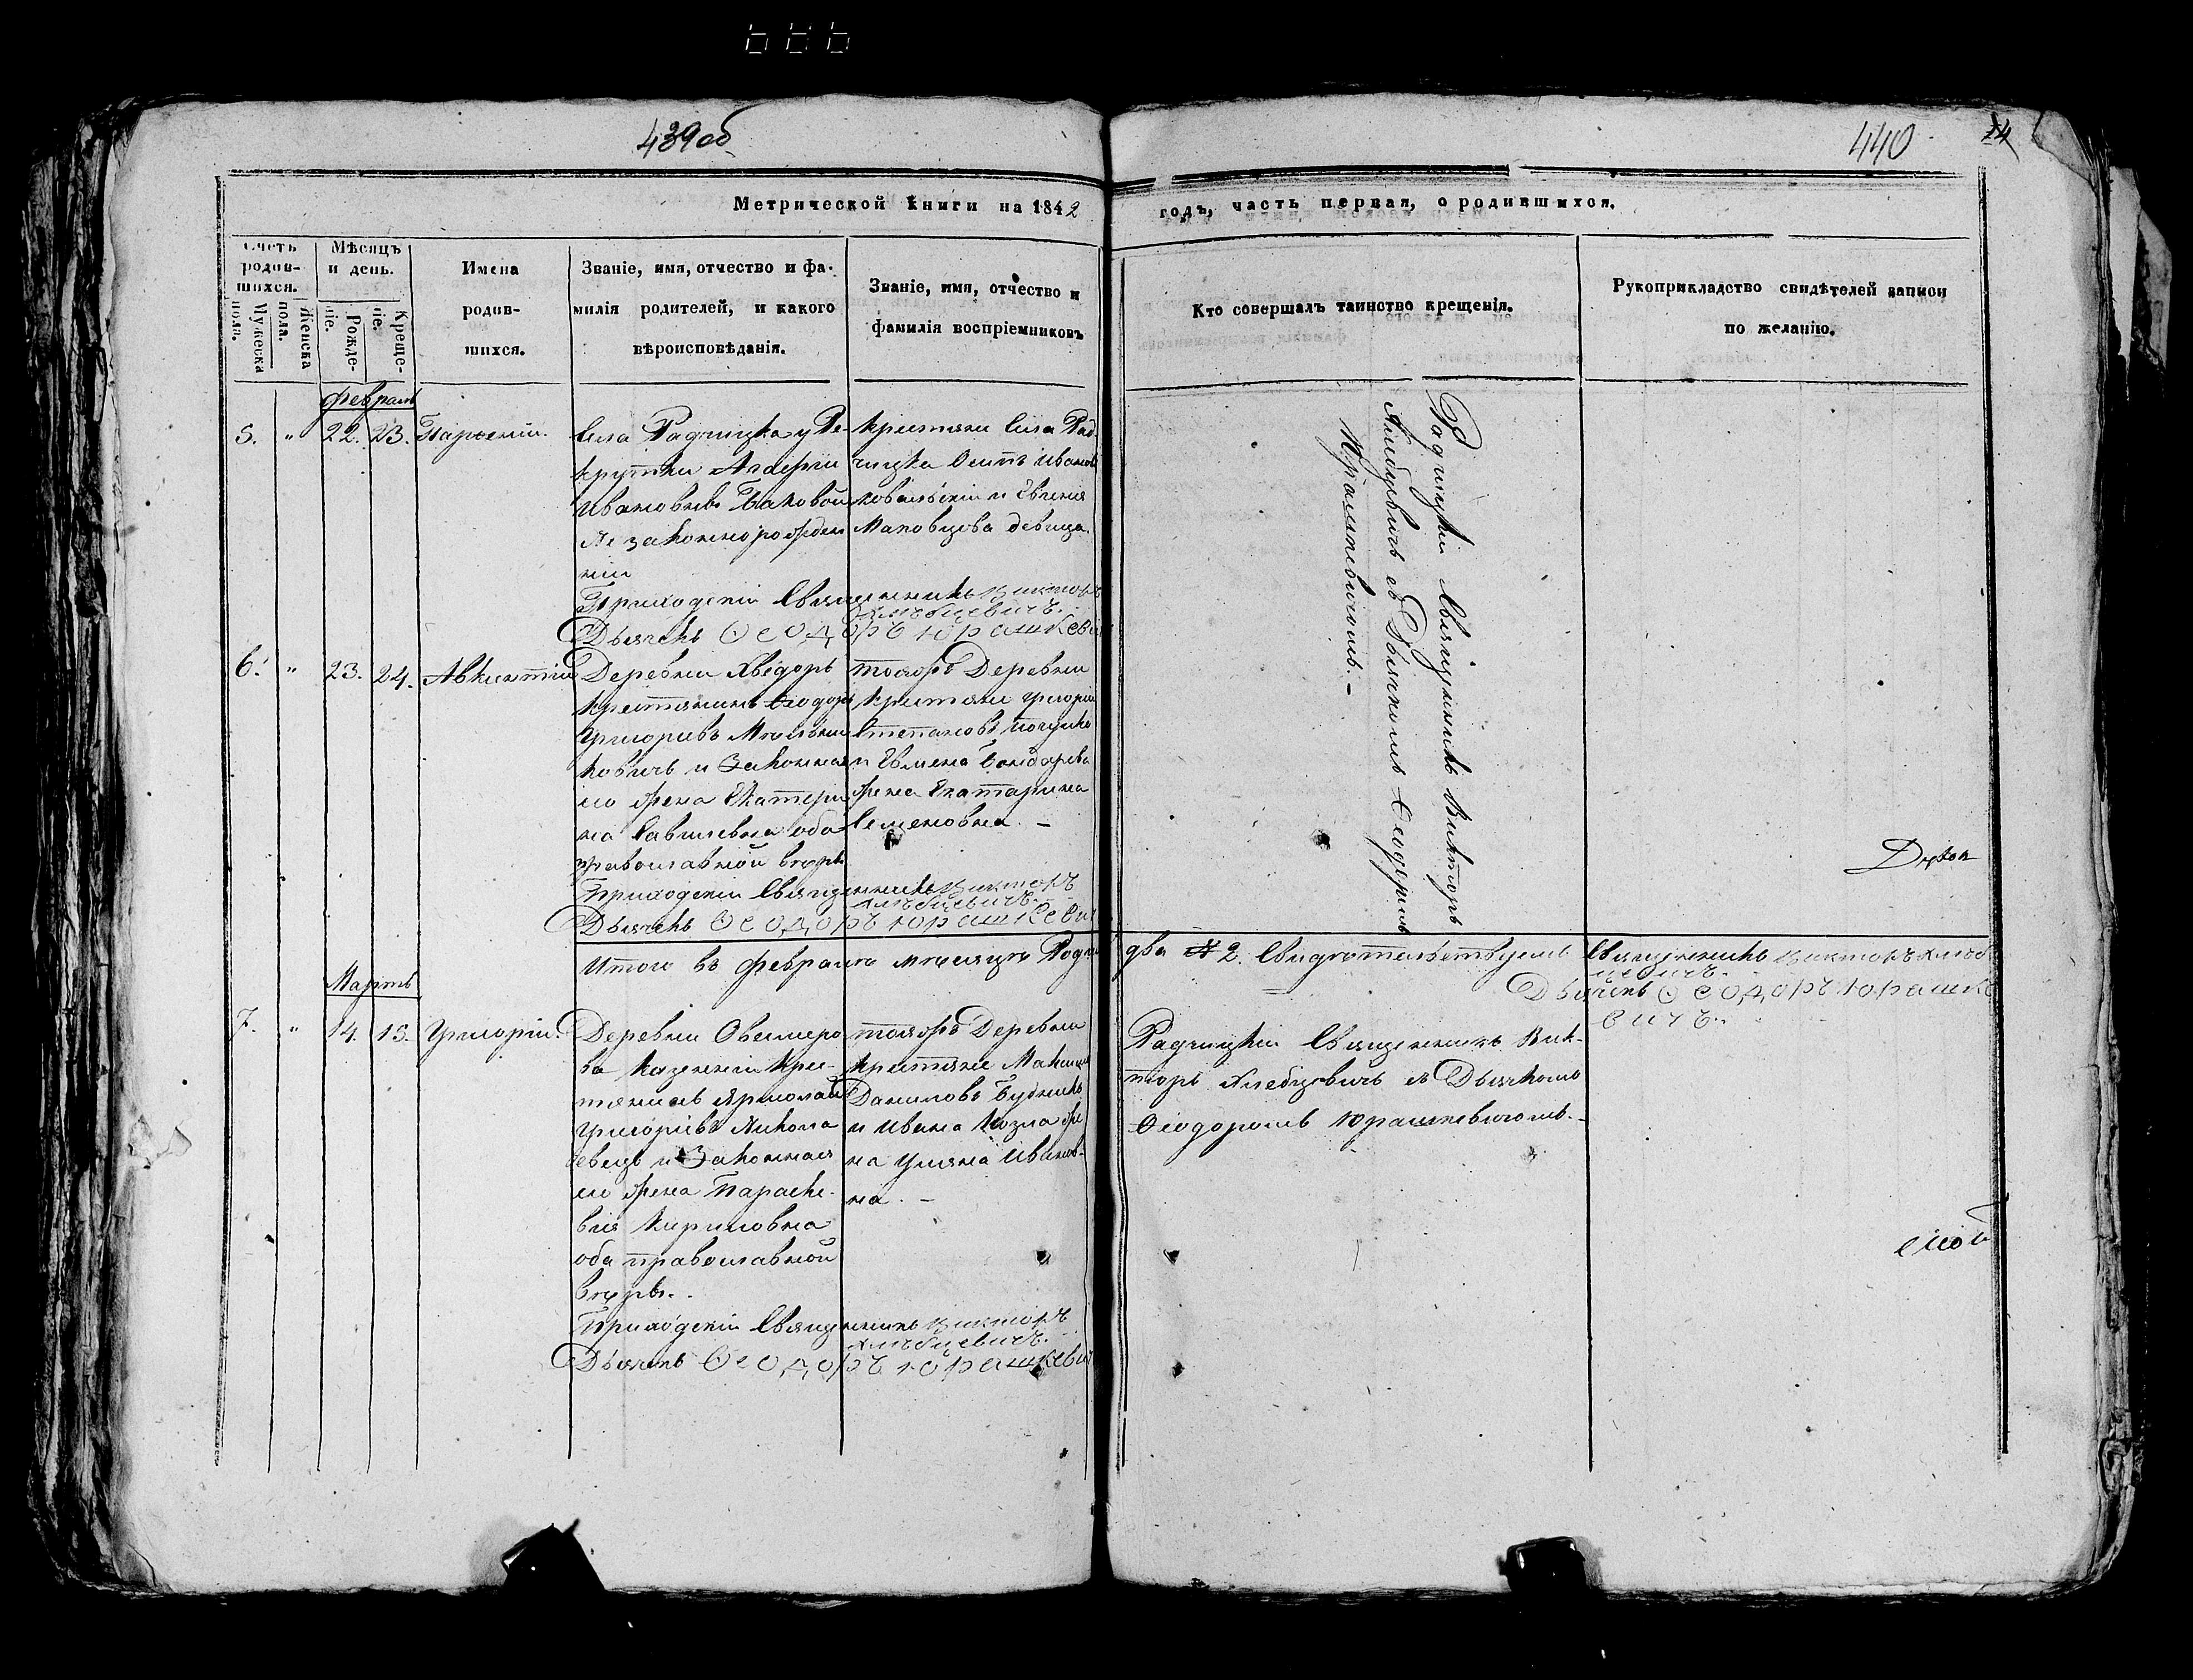 439об
440
Метрической Книги на 1842
годъ, часть первая, о родившихся.
Счетъ родив-шихся.
Мужеска пола.
Женска пола.
Мѣсяцъ и день.
Рожде-ніе.
Креще-ніе.
Имена
родив-
шихся.
Званіе, имя, отчество и фа-
милія родителей, и какого
вѣроисповѣданія.
Званіе, имя, отчество и
фамилія воспріемниковъ
Кто совершалъ таинство крещенія.
Рукоприкладство свидѣтелей записи
по желанію.
Февраль
5. " 22. 23.
Села Радчицка у Ре-
крутки
Ивановны
Незаконнорожден
ніи
Приходскій Священникъ Викторъ
Хлѣбцевичъ.
Дьячекъ Ѳеодоръ Юрашкеви
Крестяни Села Рад
чицка Осипъ Иванов
девица
Радчицкій Священникъ Викторъ
Хлебцевичъ съ Дьячкомъ Ѳеодоромъ
Юрашкевичомъ. -
6. " 23. 24.
Деревни Хведоръ
крестянинъ Ѳеодоръ
Григориевъ
ковичъ и Законная
его жена Екатери
на Савишевна оба
православной вѣры
Приходскій Священникъ Викторъ
Хлѣбцевичъ.
Дьячекъ Ѳеодоръ Юрашкеви
тояжъ Деревни
крестяни Григорій
Степановъ
жена Екатарина
Семеновна. -
Итого въ февралѣ мѣсяцѣ Роди
два 2. Свидѣтельствуемъ Священникъ Викторъ Хлѣб
цевичъ.
Дьячекъ Ѳеодоръ Юрашке
вичъ.
Мартъ
7. " 14. 15. Григорій.
Деревни
ва Казенній Кре-
стянинъ Ярмолай
Григоріевъ
евецъ и Законная
его жена Параске-
вія Кириловна
оба православной
вѣры.
Приходскій Священникъ Викторъ
Хлѣбцевичъ.
Дьячекъ Ѳеодоръ Юрашкеви
тояжъ Деревни
крестяне Максим
Даниловъ Будникъ
и Ивана Козла же
на Уляна Иванов-
на. -
Радчицкій Священникъ Вик-
торъ Хлебцевичъ съ Дьячкомъ
Ѳеодоромъ Юрашкевичомъ. -